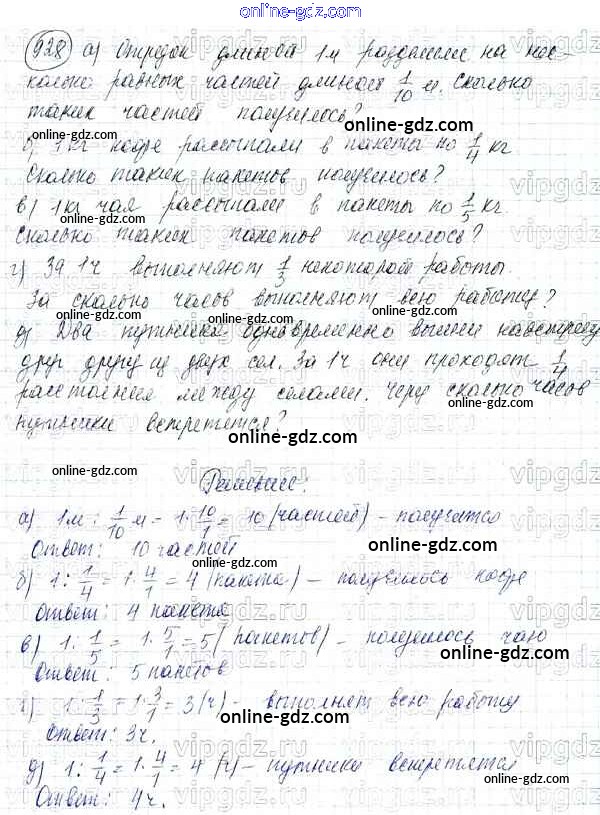 online-gdz.com
928 а) Отрезок длиной 1м разделили на нес-
колько равных частей длиной 1/10 м. Сколько
таких частей получилось?
online-gdz.com
б) 1 кг кофе рассыпали в пакеты по 1/4 кг
Сколько таких пакетов получилось?
в) 1 кг чая рассыпали в пакеты по 1/5 кг.
Сколько таких пакетов получилось?
г) За 1ч выполняют 1/3 некоторой работы.
За сколько часов выполняют всю работу?
д) Два путника одновременно вышли навстречу
друг другу из двух сел. За 1ч они проходят 1/4
расстояния между селами. Через сколько часов
путники встретятся?
online-gdz.com
online-gdz.com
Решение:
online-gdz.com
а) 1м : 1/10 м = 1 · 10/1 = 10 (частей) – получится
Ответ: 10 частей
online-gdz.com
б) 1 : 1/4 = 1 · 4/1 = 4 (пакета) – получилось кофе
Ответ: 4 пакета
online-gdz.com
в) 1 : 1/5 = 1 · 5/1 = 5 (пакетов) – получилось чаю
Ответ: 5 пакетов
online-gdz.com
online-gdz.com
г) 1 : 1/3 = 1 · 3/1 = 3 (ч) – выполнят всю работу
Ответ: 3ч.
online-gdz.com
online-gdz.com
д) 1 : 1/4 = 1 · 4/1 = 4 (ч) – путники встретятся
Ответ: 4ч.
online-gdz.com